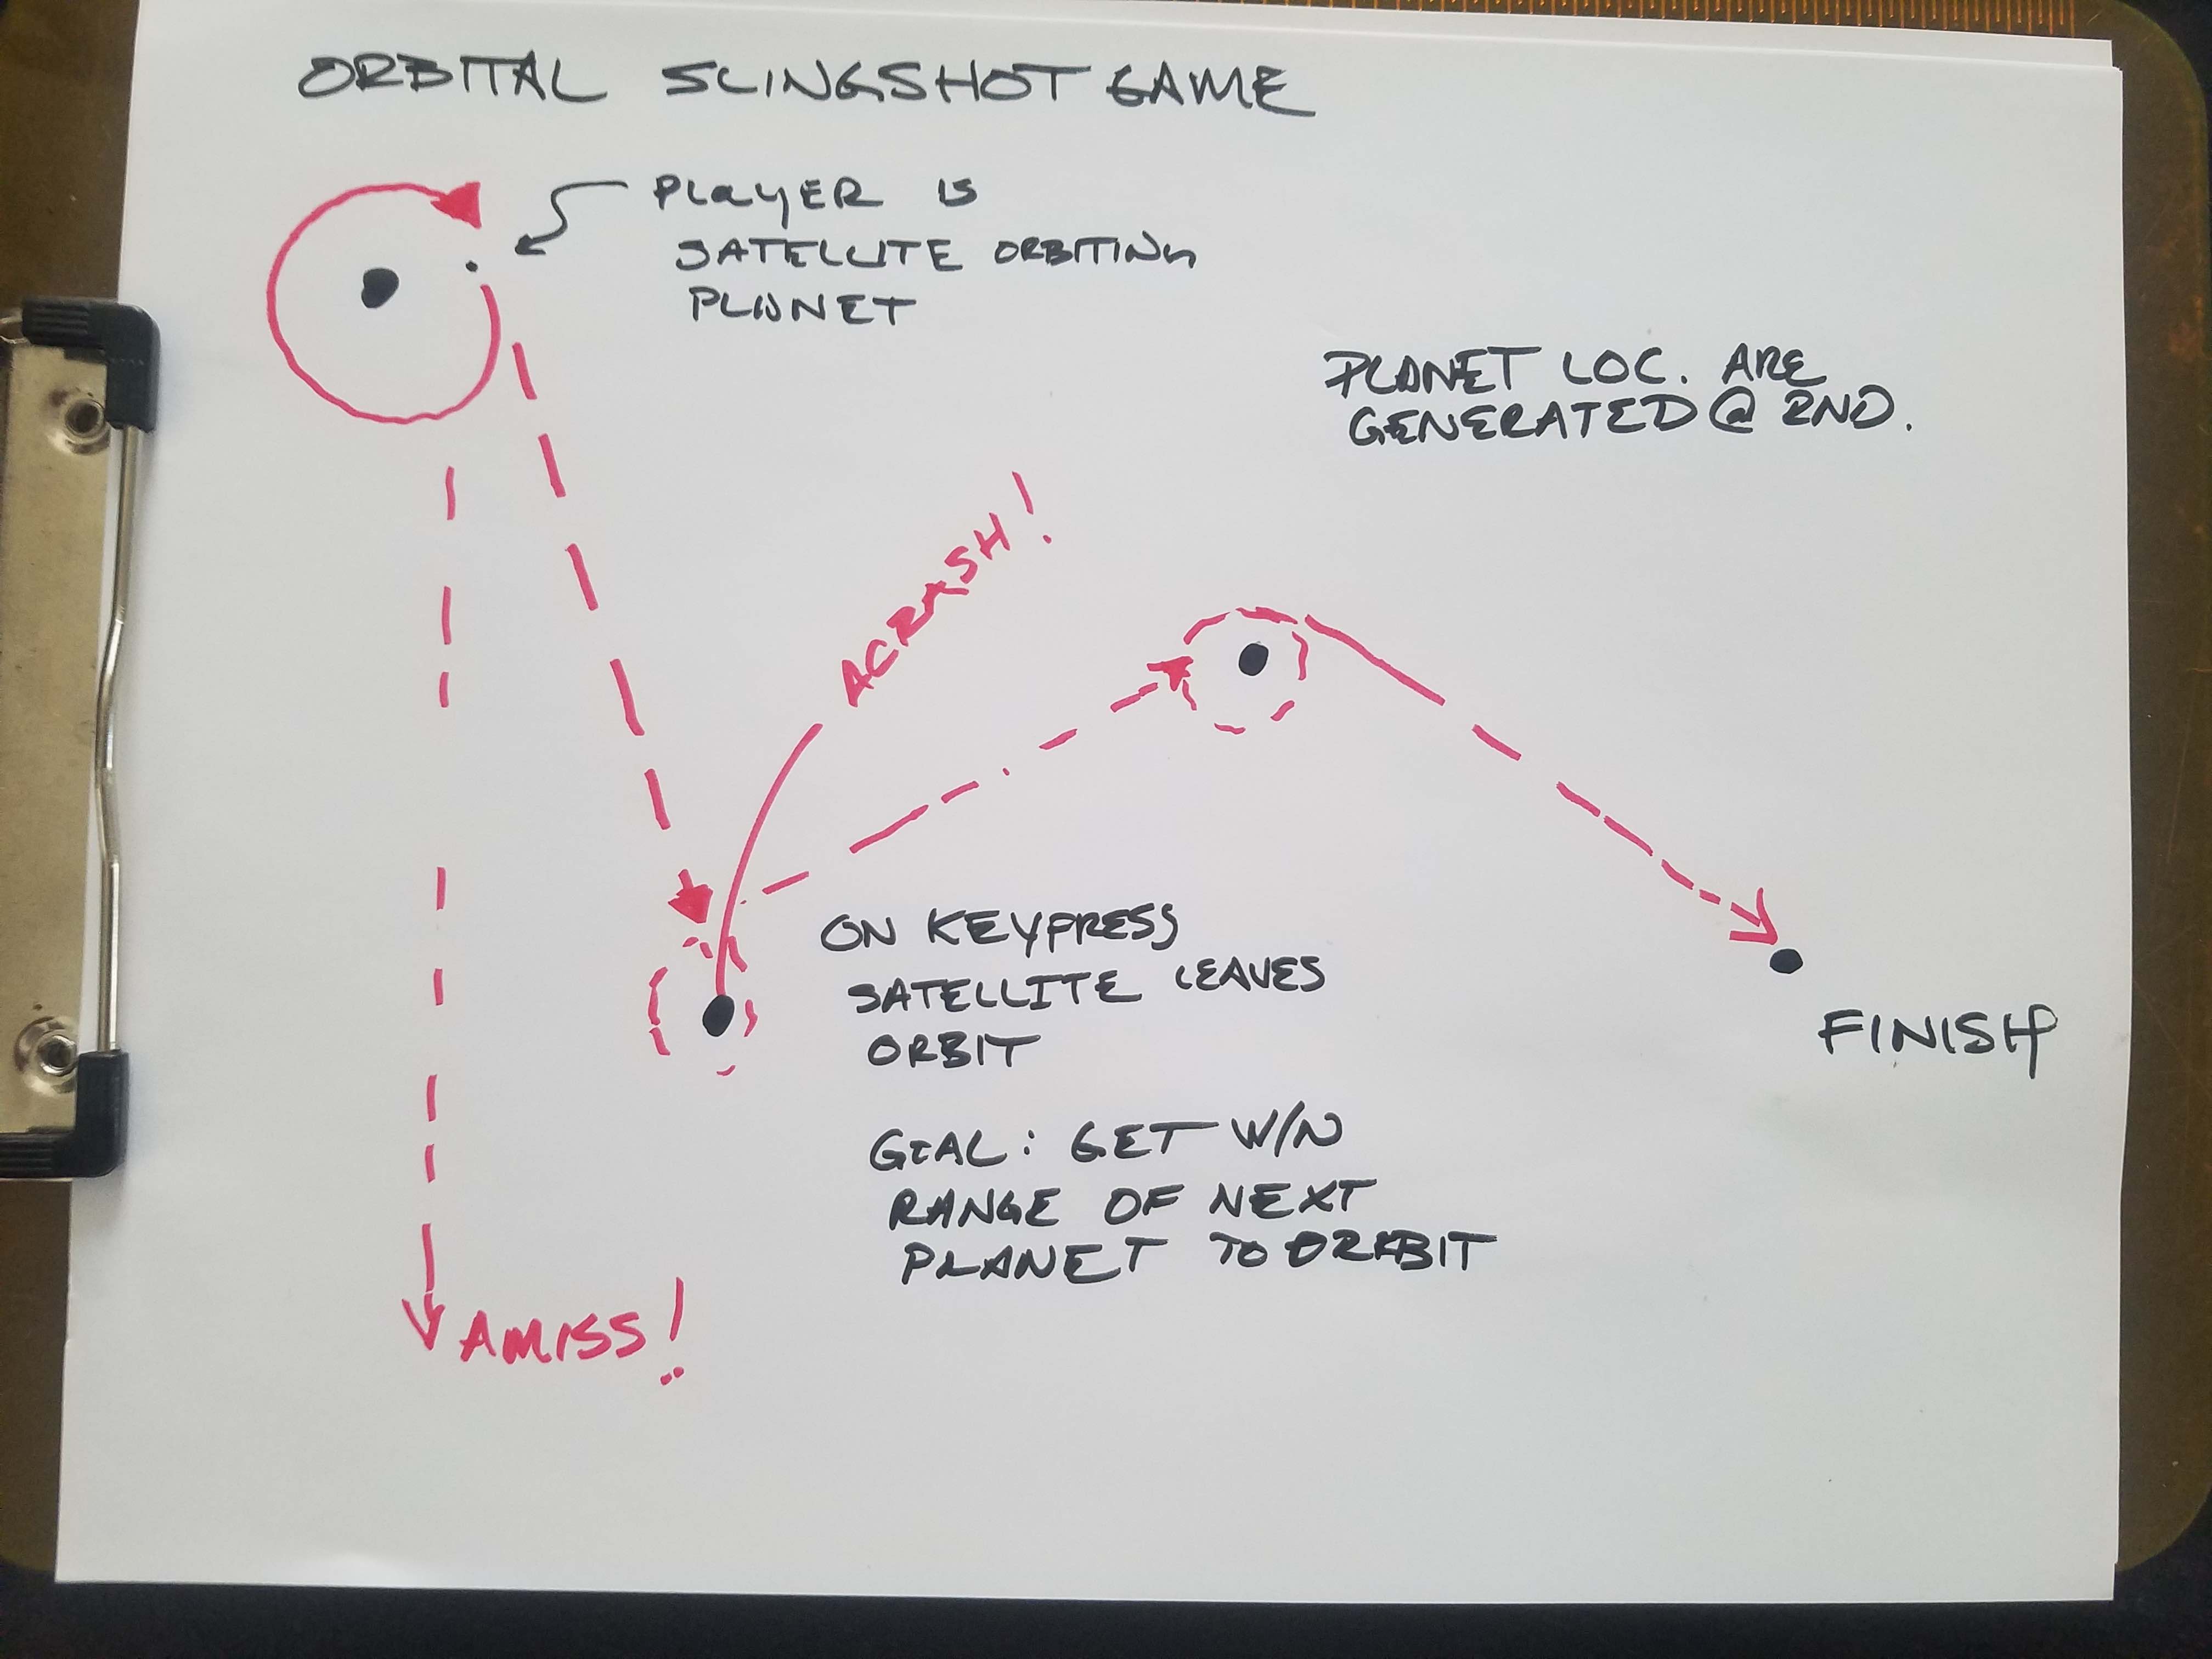 ORBITAL SLINGSHOT GAME
PLAYER IS
SATELLITE ORBITING
PLANET
PLANET LOC. ARE
GENERATED @ RND.
ACRASH!
ON KEYPRESS
SATELLITE LEAVES
ORBIT
FINISH
GOAL: GET W/N
RANGE OF NEXT
PLANET TO ORBIT
AMISS!